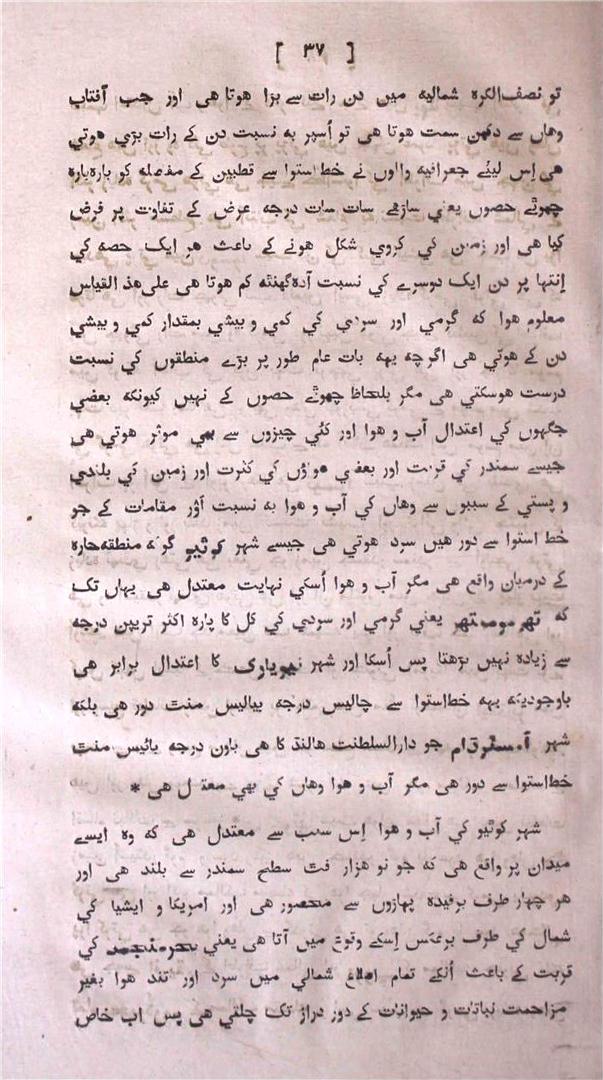 [ ۳۷ ]
تو نصف‌الکرہ شمالیہ میں دن رات سے بڑا ہوتا ہی اور جب آفتاب
وہاں سے دکھن سمت ہوتا ہی تو اُسپر بہ نسبت دن کے رات بڑی ہوتي
ہی اِس لیئے جغرافیہ والوں نے خط استوا سے قطبین کے مفصلہ کو بارہ بارہ
چھوٹے حصوں یعني ساڑھے سات سات درجہ عرض کے تفاوت پر فرض
کیا ہی اور زمین کي کروي شکل ہونے کے باعث ہر ایک حصہ کي
اِنتہا پر دن ایک دوسرے کي نسبت آدہ گھنٹہ کم ہوتا ہی علی ہذ القیاس
معلوم ہوا کہ گرمي اور سردي کي کمي و بیشي بمقدار کمي و بیشي
دن کے ہوتي ہی اگرچہ یہہ بات عام طور پر بڑے منطقوں کي نسبت
درست ہوسکتي ہی مگر بلحاظ چھوٹے حصوں کے نہیں کیونکہ بعضي
جگہوں کي اعتدال آب و ہوا اور کئي چیزوں سے بھي موثر ہوتي ہی
جیسے سمندر کي قربت اور بعضي ہواؤں کي کثرت اور زمین کي بلندي
و پستي کے سببوں سے وہاں کي آب و ہوا بہ نسبت اَوْر مقامات کے جو
خط استوا سے دور ہیں سرد ہوتي ہی جیسے شہر کوئیٹو گو کہ منطقہ حارہ
کے درمیان واقع ہی مگر آب و ہوا اُسکي نہایت معتدل ہی یہاں تک
کہ تھرمومیتھر یعني گرمي اور سردي کي کل کا پارہ اکثر تریپن درجہ
سے زیادہ نہیں بڑھتا پس اُسکا اور شہر نیویارک کا اعتدال برابر ہی
باوجودیکہ یہہ خط استوا سے چالیس درجہ بیالیس منٹ دور ہی بلکہ
شہر آمسٹرڈام جو دارالسلطنت ہالنڈ کا ہی باون درجہ بائیس منٹ
خط استوا سے دور ہی مگر آب و ہوا وہاں کي بھي معتدل ہی *
شہر کوئیٹو کي آب و ہوا اِس سبب سے معتدل ہی کہ وہ ایسے
میدان پر واقع ہی کہ جو نو ہزار فٹ سطح سمندر سے بلند ہی اور
ہر چہار طرف برفیدہ پہاڑوں سے محصور ہی اور امریکا و ایشیا کي
شمال کي طرف برعکس اِسکے وقوع میں آتا ہی یعني بحرمنجمد کي
قربت کے باعث اُنکے تمام اضلاع شمالي میں سرد اور تند ہوا بغیر
مزاحمت نباتات و حیوانات کے دور دراز تک چلتي ہی پس اب خاص